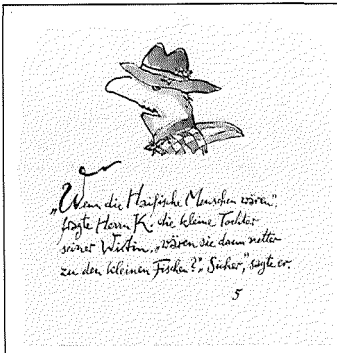 „Wenn die Haifische Menschen wären",
fragte Herrn K. die kleine Tochter
seiner Wirtin, „wären sie dann netter
zu den kleinen Fischen?" „Sicher," sagte er.
5